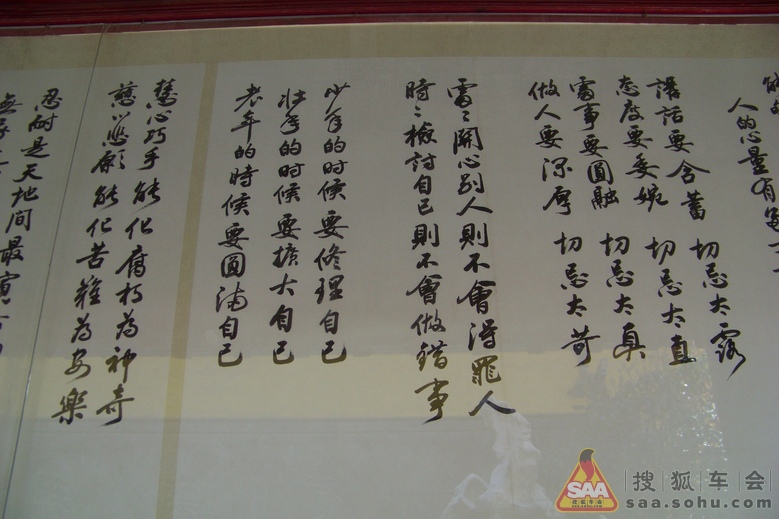 人的心量有多
講話要含蓄 切忌太露
态度要委婉 切忌太直
處事要圓融 切忌太真
做人要深厚 切忌太苛
處〻關心別人則不會得罪人
時〻檢討自己則不會做錯事
少年的时候要修理自己
壯年的时候要擴大自己
老年的時候要圓滿自己
慧心巧手能化腐朽為神奇
慈心悲願能化苦難為安樂
忍耐是天地間最寶
無
SAA
搜狐车会
saa.sohu.com